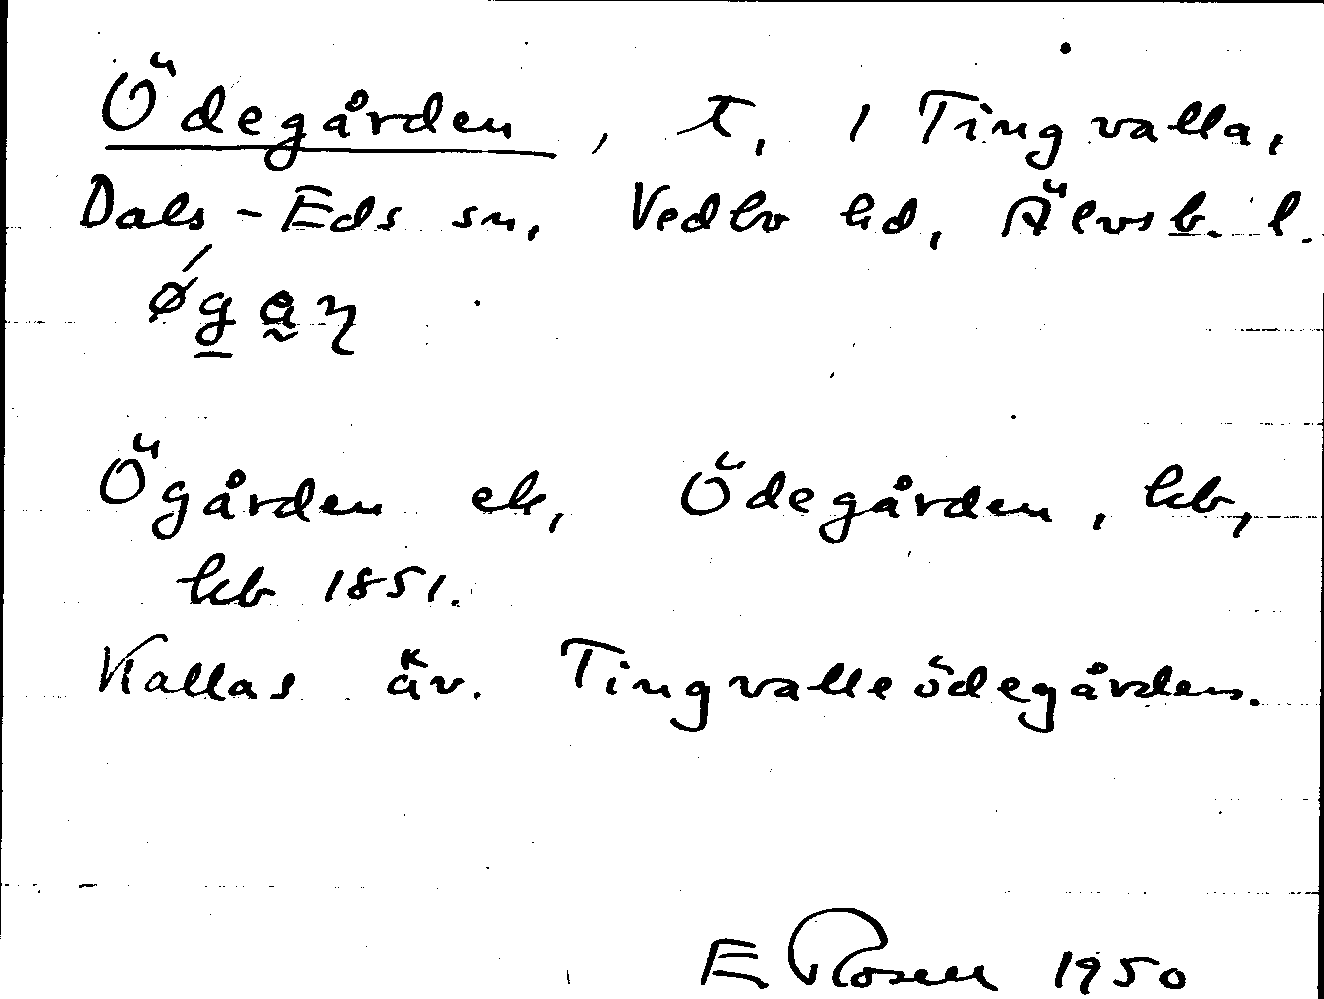 Ödegården, t. / Tingvalla,
Dals-Eds sn, Vedbo hd, Älvsb. l.
Ögården ek, Ödegården, hb,
kb 1851.
Kallas äv. Tingvalleödegården.
E Rosell 1950